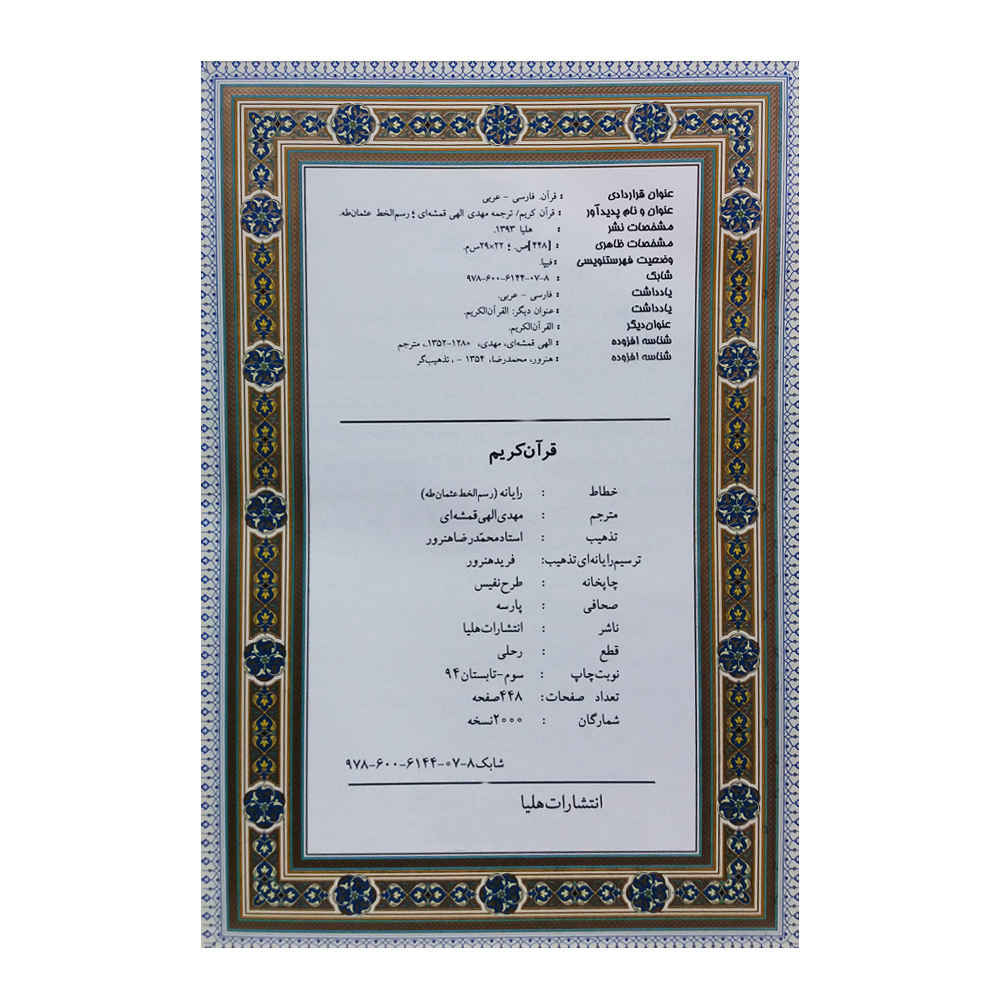 عنوان قراردادی : قرآن. فارسی - عربی
عنوان و نام پدیدآور : قرآن کریم/ ترجمه مهدی الهی قمشه‌ای ؛ رسم‌الخط عثمان‌طه.
مشخصات نشر : هلیا ۱۳۹۳.
مشخصات ظاهری : [۴۴۸]ص. ؛ ۲۲×۲۹س‌م.
وضعیت فهرستنویسی : فیپا.
شابک : ۹۷۸-۶۰۰-۶۱۴۴-۰۷-۸
یادداشت : فارسی - عربی.
یادداشت : عنوان دیگر: القرآن‌الکریم.
عنوان‌دیگر : القرآن‌الکریم.
شناسه افزوده : الهی قمشه‌ای، مهدی، ۱۲۸۰-۱۳۵۲.، مترجم
شناسه افزوده : هنرور، محمدرضا، ۱۳۵۴ - ، تذهیب‌گر
قرآن‌کریم
خطاط : رایانه (رسم‌الخط عثمان‌طه)
مترجم : مهدی‌الهی‌قمشه‌ای
تذهیب : استادمحمّدرضاهنرور
ترسیم‌رایانه‌ای‌تذهیب: فریدهنرور
چاپخانه : طرح‌نفیس
صحافی : پارسه
ناشر : انتشارات‌هلیا
قطع : رحلی
نوبت‌چاپ : سوم-تابستان۹۴
تعداد صفحات: ۴۴۸صفحه
شمارگان : ۲۰۰۰نسخه
شابک ۸-۰۷-۶۱۴۴-۶۰۰-۹۷۸
انتشارات‌هلیا